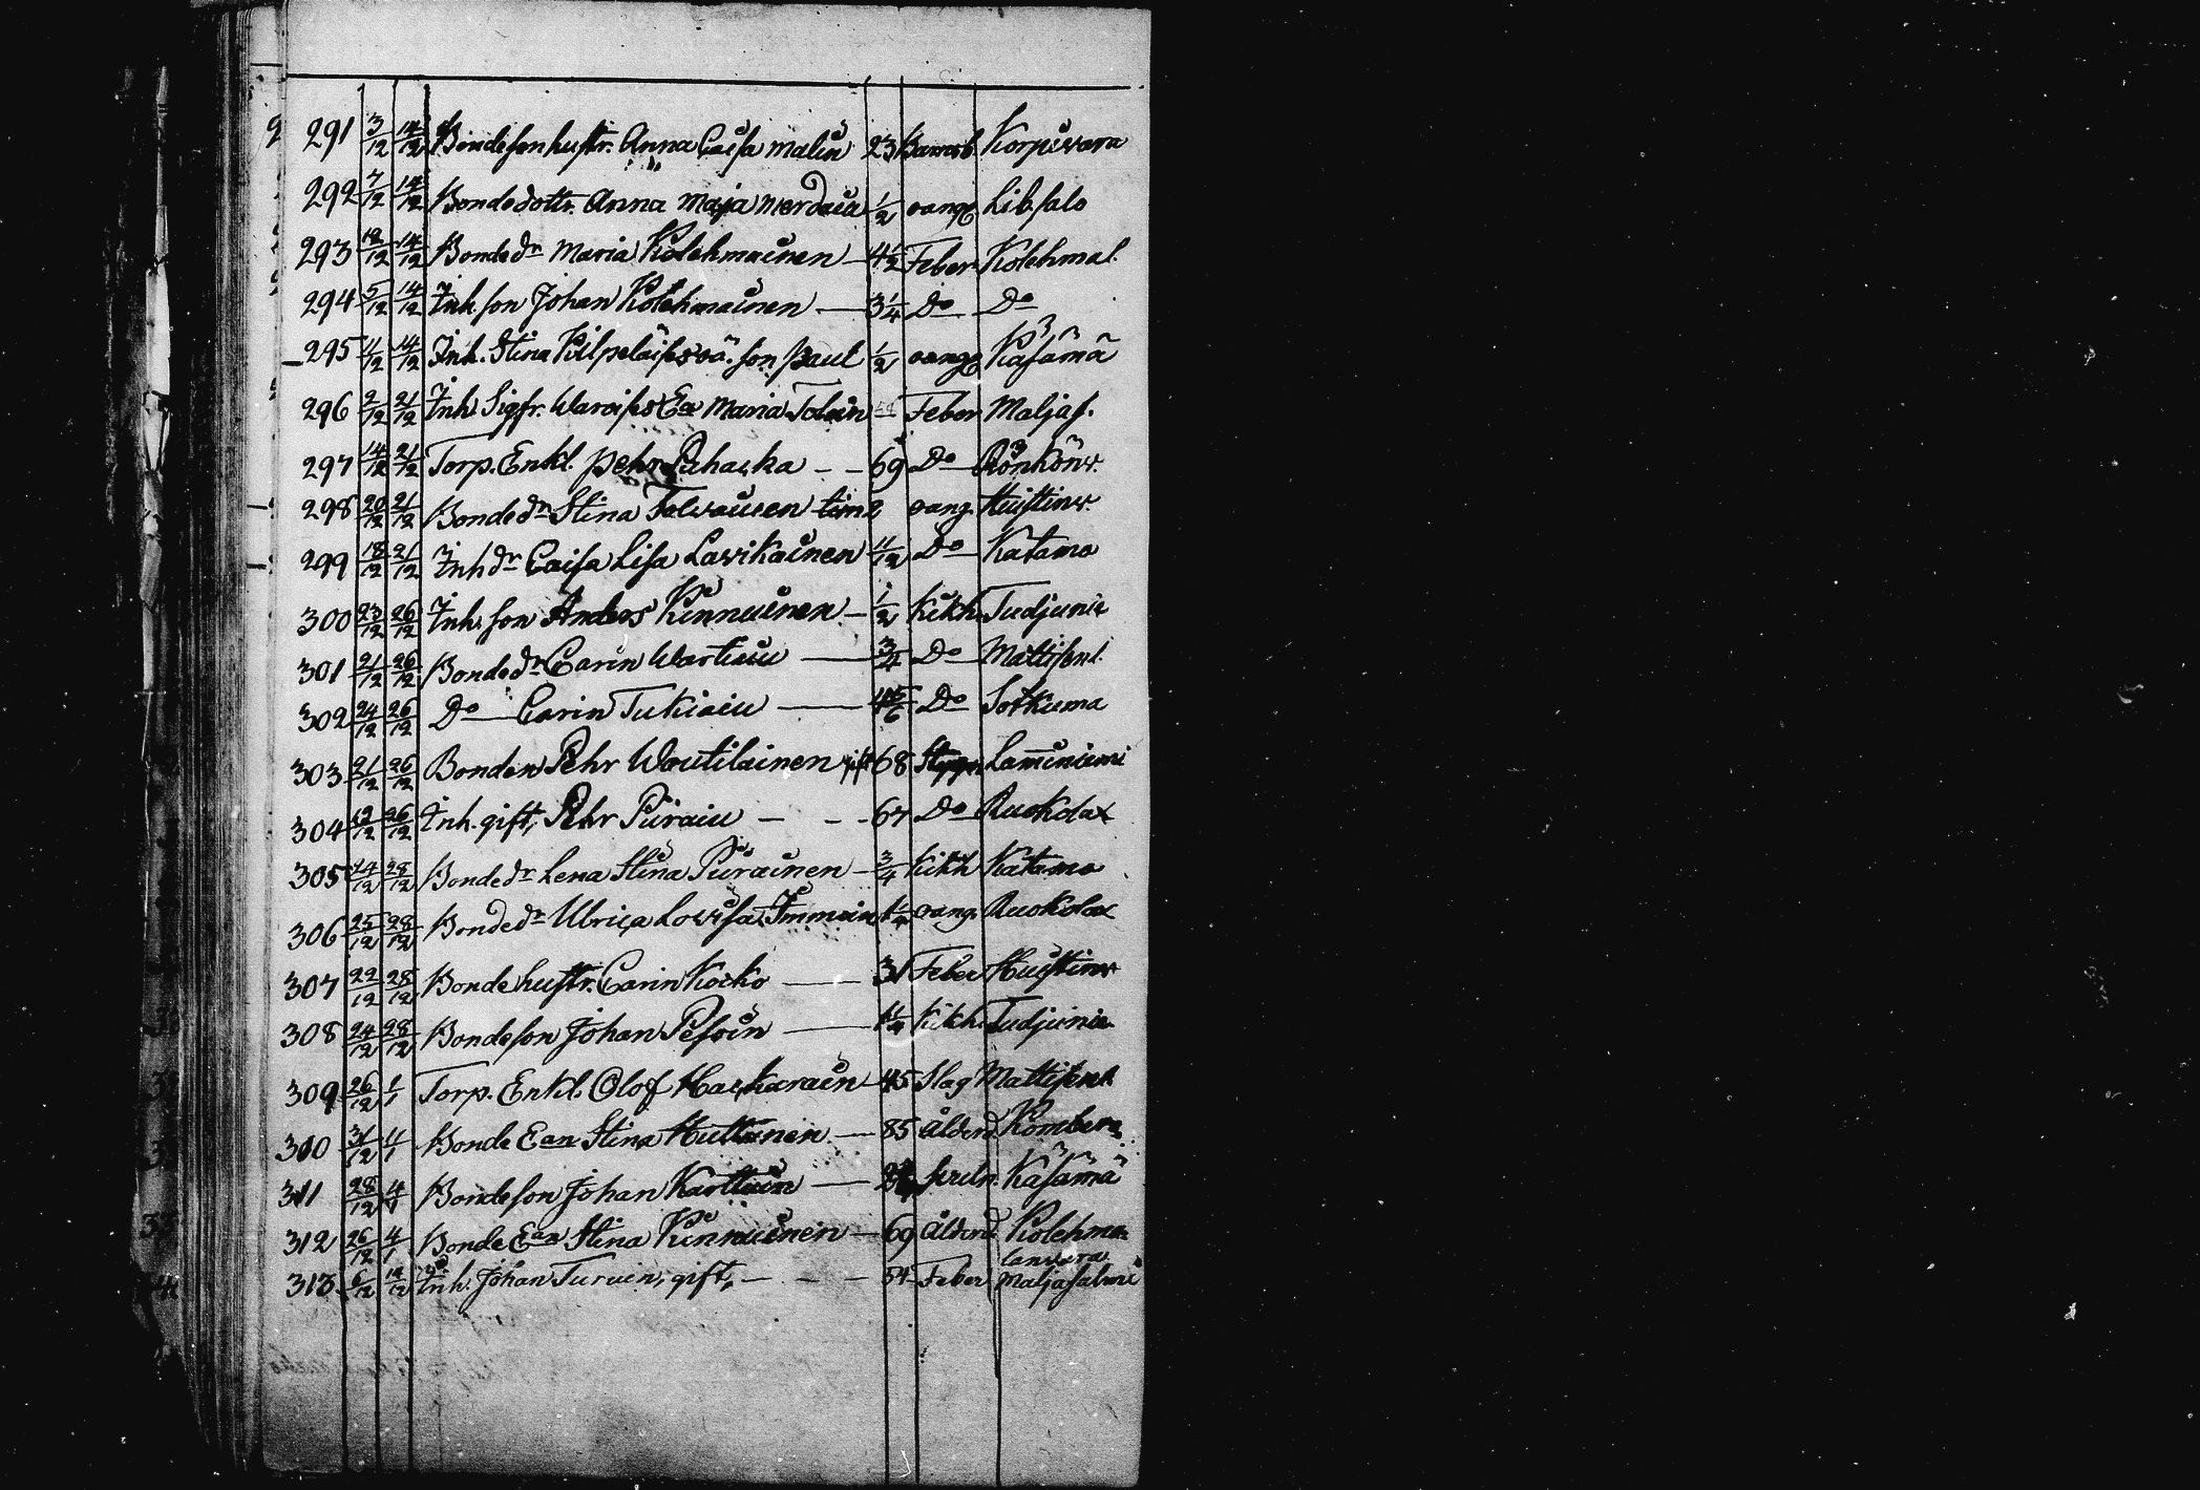 291 3/12 14/12 Bondesonhustr. Anna Caisa Malin 23 Barnsb. Korpivara
292 7/12 14/12 Bondedottr. Anna Maja Merdain 1/2 oang. Lib.salo
293 12/12 14/12 Bonde dr Maria Kolehmainen — 4 1/2 Feber Kolehmal.
294 5/12 14/12 Inh. son Johan Kolehmainen — 3 1/4 Do Do
295 11/12 14/12 Inh. Stina Kilpeläises oä. son Paul 1/2 oang. Käsämä
296 2/12 21/12 Inh. Sigfr. Waroises Ea Maria Toluin Feber Maljas.
297 14/12 21/12 Torp. Enkl. Pehr Puhacka - - 69 Do Rönkönv.
298 20/12 21/12 Bonde dr Stina Tolvainen tim 2 oang. Huistinv.
299 18/12 21/12 Inh dr Caisa Lisa Lavikainen 11/12 Do Katamo
300 23/12 26/12 Inh. son Anders Kinnuinen — 1/2 Kikh. Tudjunie
301 21/12 26/12 Bonde dr Carin Wartiain — 3/4 Do Mattisenl.
302 24/12 26/12 Do Carin Tukiain — 4 5/6 Do Sotkuma
303 21/12 26/12 Bonden Pehr Woutilainen gift 68 Laminiemi
304 19/12 26/12 Inh. gift, Pehr Piirain - - - 67 Do Ruokolax
305 24/12 28/12 Bonde dr Lena Stina Piirainen — 3/4 Kikh Katamo
306 25/12 28/12 Bonde dr Ulrica Lovisa Immoin 1 1/2 oang. Ruokolax
307 22/12 28/12 Bonde hustr. Carin Kocko — 31 Feber Huistinv
308 24/12 28/12 Bondeson Johan Pesoin — 1 1/2 Kikh. Tudjunie
309 26/12 1/1 Torp. Enkl. Olof Hackarain 45 Slag Mattisenl.
310 31/12 4/1 Bonde Ean Stina Huttunen — 85 Ålderd Kombera
311 28/12 4/1 Bondeson Johan Karttuin — Käsämä
312 26/12 4/1 Bonde Ean Stina Kinnuinen — 69 Ålderd Kolehma
lanvara
313 6/12 12/12 Inh. Johan Turuin, gift, - - - 54 Feber Maljasalmi